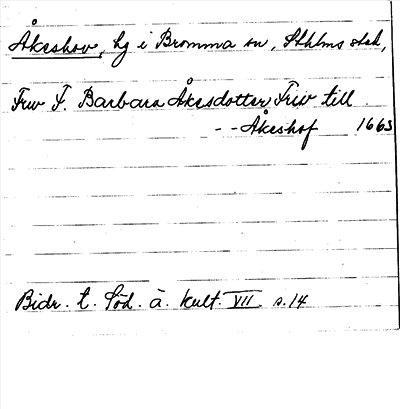 Åkeshov, hg i Bromma sn, Sthlms stad,
Fru F. Barbara Åkesdotter, Friv till
- - Åkeshof 1663
Bidr. t. Söd. ä. kult. VII s. 14